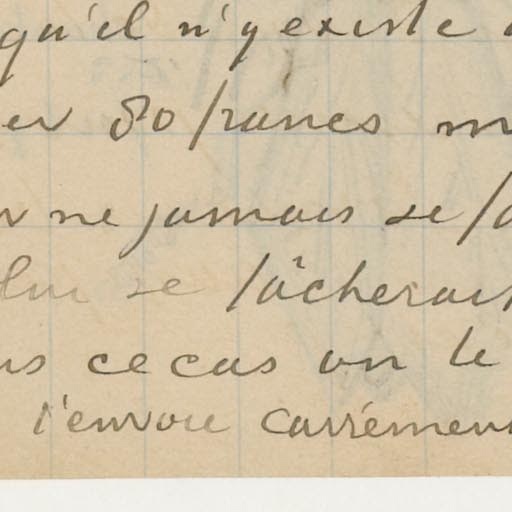 qu'il n'y existe
er 80 francs m
r ne jamais se fâ
lui se fâcherais
ns ce cas on le
l'envoie carrément